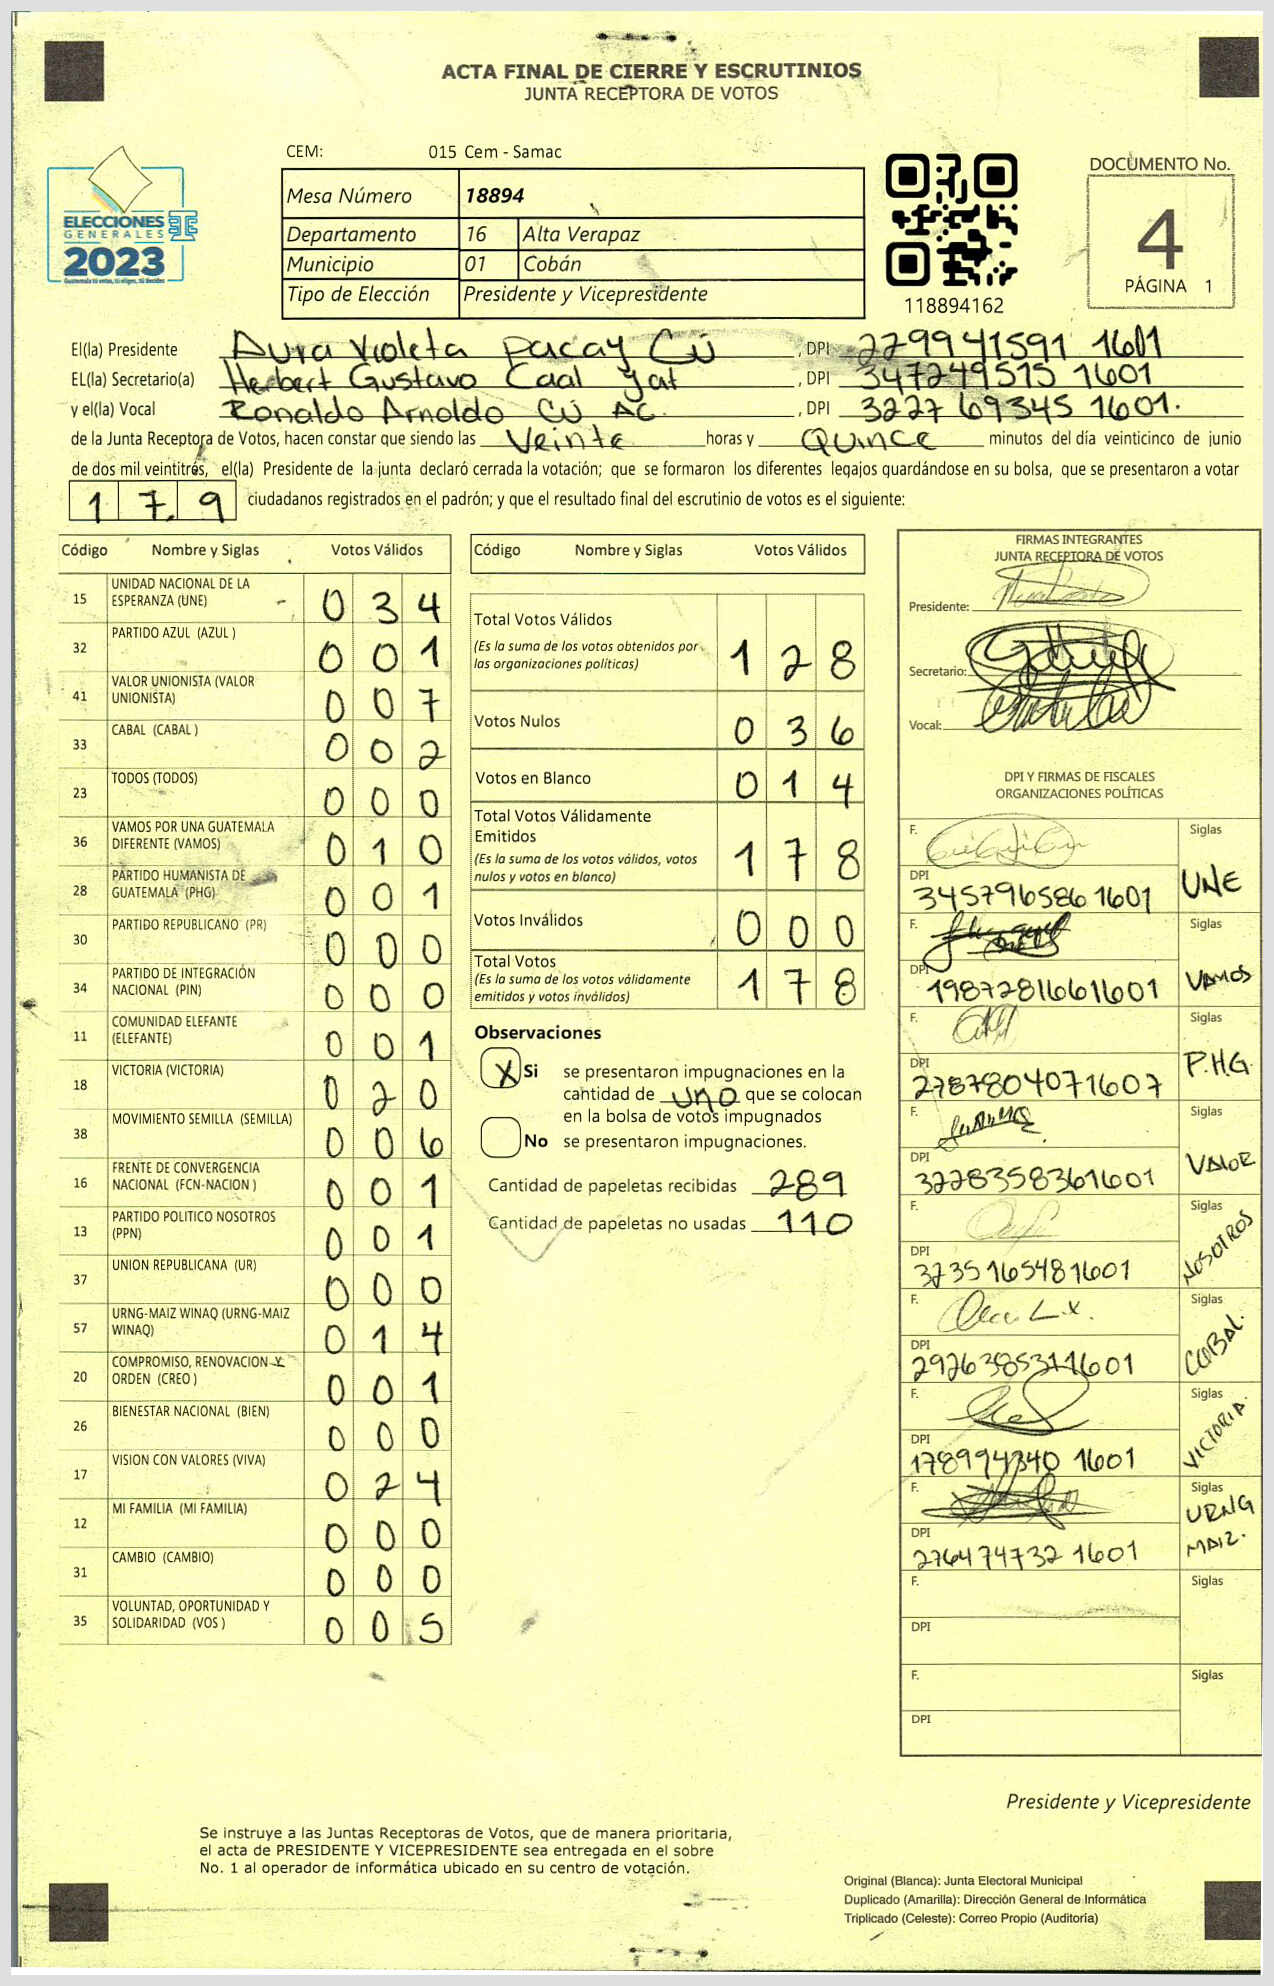 ACTA FINAL DE CIERRE Y ESCRUTINIOS
JUNTA RECEPTORA DE VOTOS
CEM: 015 Cem - Samac
Mesa Número 18894
Departamento 16 Alta Verapaz
Municipio 01 Cobán
Tipo de Elección Presidente y Vicepresidente
ELECCIONES
GENERALES
2023
118894162
DOCUMENTO No.
4
PÁGINA 1
El(la) Presidente Aura Violeta Pacay Cú, DPI 2299415911601
EL(la) Secretario(a) Herbert Gustavo Caal Yat, DPI 3472495151601
y el(la) Vocal Ronaldo Arnoldo Cú AC., DPI 3227 69345 1601.
de la Junta Receptora de Votos, hacen constar que siendo las Veinte horas y Quince minutos del día veinticinco de junio
de dos mil veintitrés, el(la) Presidente de la junta declaró cerrada la votación; que se formaron los diferentes legajos guardándose en su bolsa, que se presentaron a votar
179 ciudadanos registrados en el padrón; y que el resultado final del escrutinio de votos es el siguiente:
Código Nombre y Siglas Votos Válidos
15 UNIDAD NACIONAL DE LA ESPERANZA (UNE) 034
32 PARTIDO AZUL (AZUL ) 001
41 VALOR UNIONISTA (VALOR UNIONISTA) 007
33 CABAL (CABAL ) 002
23 TODOS (TODOS) 000
36 VAMOS POR UNA GUATEMALA DIFERENTE (VAMOS) 010
28 PARTIDO HUMANISTA DE GUATEMALA (PHG) 001
30 PARTIDO REPUBLICANO (PR) 000
34 PARTIDO DE INTEGRACIÓN NACIONAL (PIN) 000
11 COMUNIDAD ELEFANTE (ELEFANTE) 001
18 VICTORIA (VICTORIA) 020
38 MOVIMIENTO SEMILLA (SEMILLA) 006
16 FRENTE DE CONVERGENCIA NACIONAL (FCN-NACION ) 001
13 PARTIDO POLITICO NOSOTROS (PPN) 001
37 UNION REPUBLICANA (UR) 000
57 URNG-MAIZ WINAQ (URNG-MAIZ WINAQ) 014
20 COMPROMISO, RENOVACION Y ORDEN (CREO ) 001
26 BIENESTAR NACIONAL (BIEN) 000
17 VISION CON VALORES (VIVA) 024
12 MI FAMILIA (MI FAMILIA) 000
31 CAMBIO (CAMBIO) 000
35 VOLUNTAD, OPORTUNIDAD Y SOLIDARIDAD (VOS ) 005
Código Nombre y Siglas Votos Válidos
Total Votos Válidos 128
(Es la suma de los votos obtenidos por las organizaciones políticas)
Votos Nulos 036
Votos en Blanco 014
Total Votos Válidamente Emitidos 178
(Es la suma de los votos válidos, votos nulos y votos en blanco)
Votos Inválidos 000
Total Votos 178
(Es la suma de los votos válidamente emitidos y votos inválidos)
Observaciones
X Si se presentaron impugnaciones en la
cantidad de uno que se colocan
en la bolsa de votos impugnados
No se presentaron impugnaciones.
Cantidad de papeletas recibidas 289
Cantidad de papeletas no usadas 110
FIRMAS INTEGRANTES
JUNTA RECEPTORA DE VOTOS
Presidente:
Secretario:
Vocal:
DPI Y FIRMAS DE FISCALES
ORGANIZACIONES POLÍTICAS
F. Siglas
DPI 3457965861601 UNE
F. Siglas
DPI 1987281661601 VAMOS
F. Siglas
DPI 2787804071607 P.H.G.
F. Siglas
DPI 3228358361601 VALOR
F. Siglas
DPI 3235165481601 NOSOTROS
F. Siglas
DPI 2926385311601 CABAL.
F. Siglas
DPI 178994340 1601 VICTORIA.
F. Siglas
DPI 276474732 1601 URNG MAIZ.
F. Siglas
DPI
F. Siglas
DPI
Presidente y Vicepresidente
Se instruye a las Juntas Receptoras de Votos, que de manera prioritaria,
el acta de PRESIDENTE Y VICEPRESIDENTE sea entregada en el sobre
No. 1 al operador de informática ubicado en su centro de votación.
Original (Blanca): Junta Electoral Municipal
Duplicado (Amarilla): Dirección General de Informática
Triplicado (Celeste): Correo Propio (Auditoría)